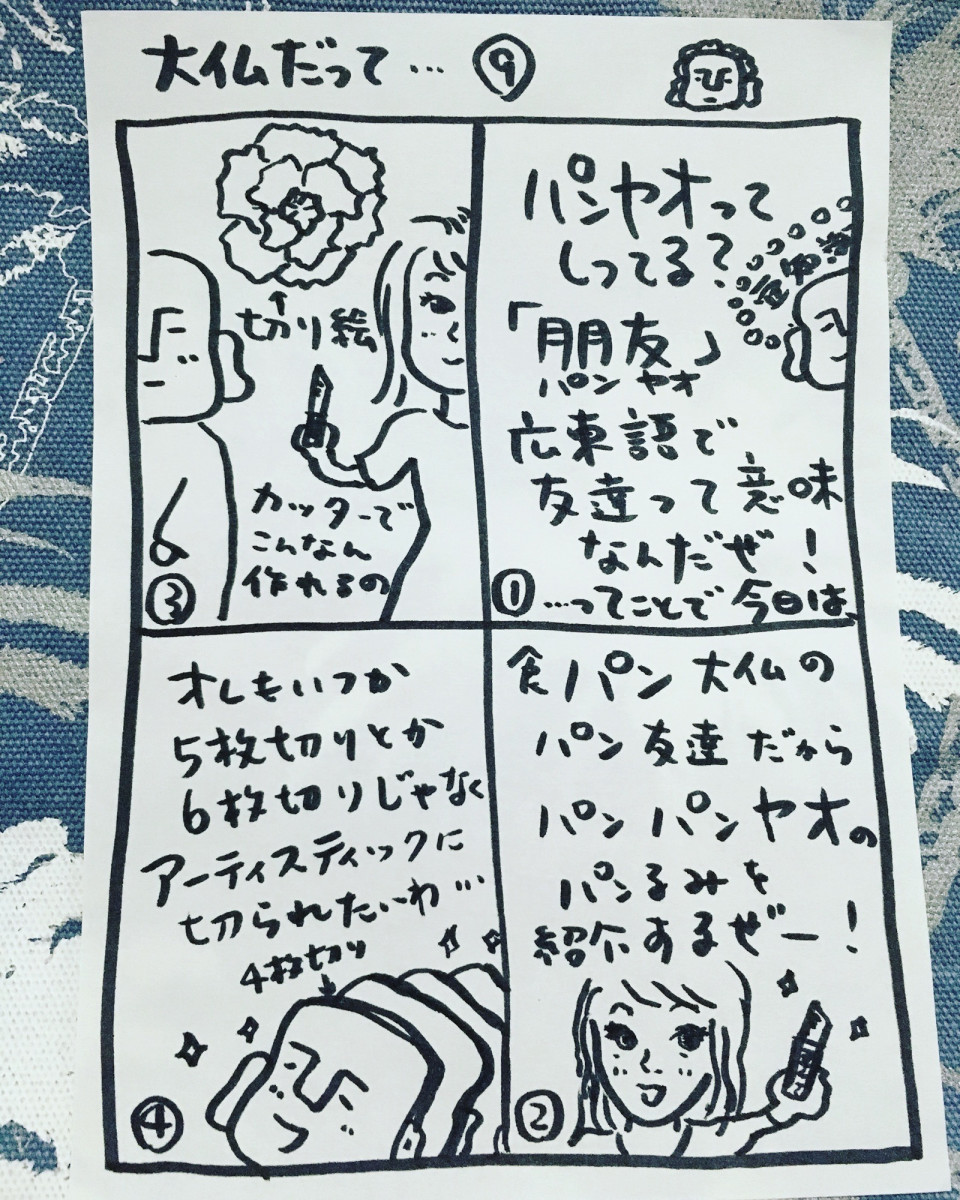 大仏だって… ⑨
パンヤオって
しってる?
「朋友」
パンヤオ
広東語で
友達って意味
なんだぜ!
① …ってことで今日は、
食パン大仏の
パン友達だから
パンパンヤオの
パンるみを
紹介するぜー!
②
↑
切り絵
カッターで
こんなん
作れるの
③
オレもいつか
5枚切りとか
6枚切りじゃなく
アーティスティックに
切られたいわ…
4枚切り
↓
④